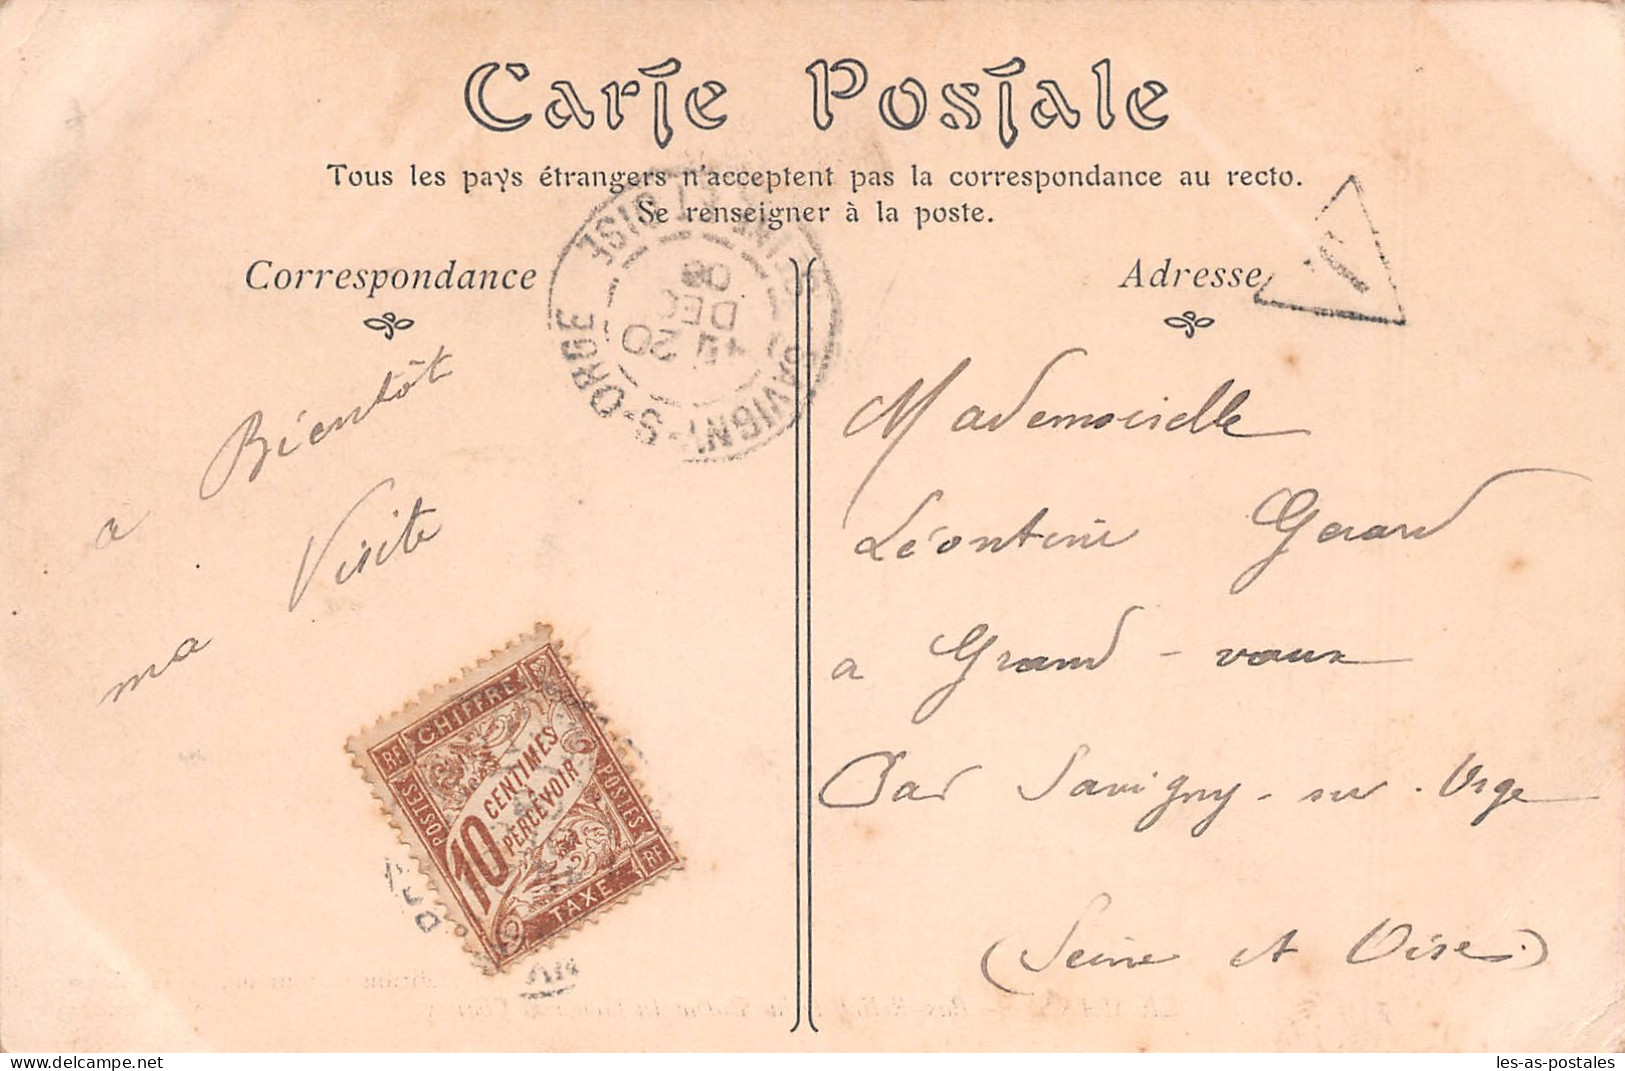 Carte Postale
Tous les pays étrangers n'acceptent pas la correspondance au recto.
Se renseigner à la poste.
Correspondance
Adresse
SAVIGNY-S-ORGE
SEINE ET OISE
20
DEC
T
a Bientôt
ma Visite
Mademoiselle
Léontine Gerard
a Grand-vaux
Par Savigny-sur-Orge
(Seine et Oise)
RF CHIFFRE
POSTES
10 CENTIMES
A
PERCEVOIR
POSTES
TAXE RF
les-as-postales